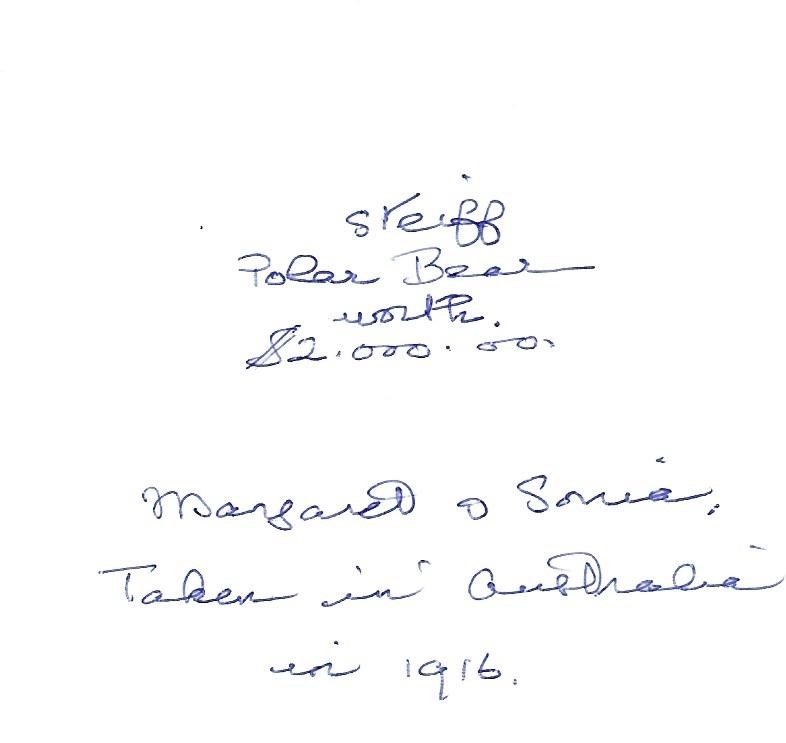 Steiff
Polar Bear
worth.
$2.000.00.
Margaret & Sonia.
Taken in Australia
in 1916.